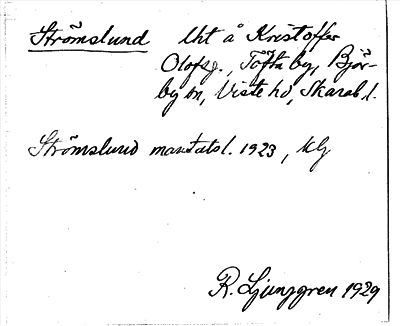 Strömslund lht å Kristoffer
Olofsg., Tofta by, Björ-
by sn, Viste hd, Skarab.l.
Strömslund mantalsl. 1923,
R. Ljunggren 1929